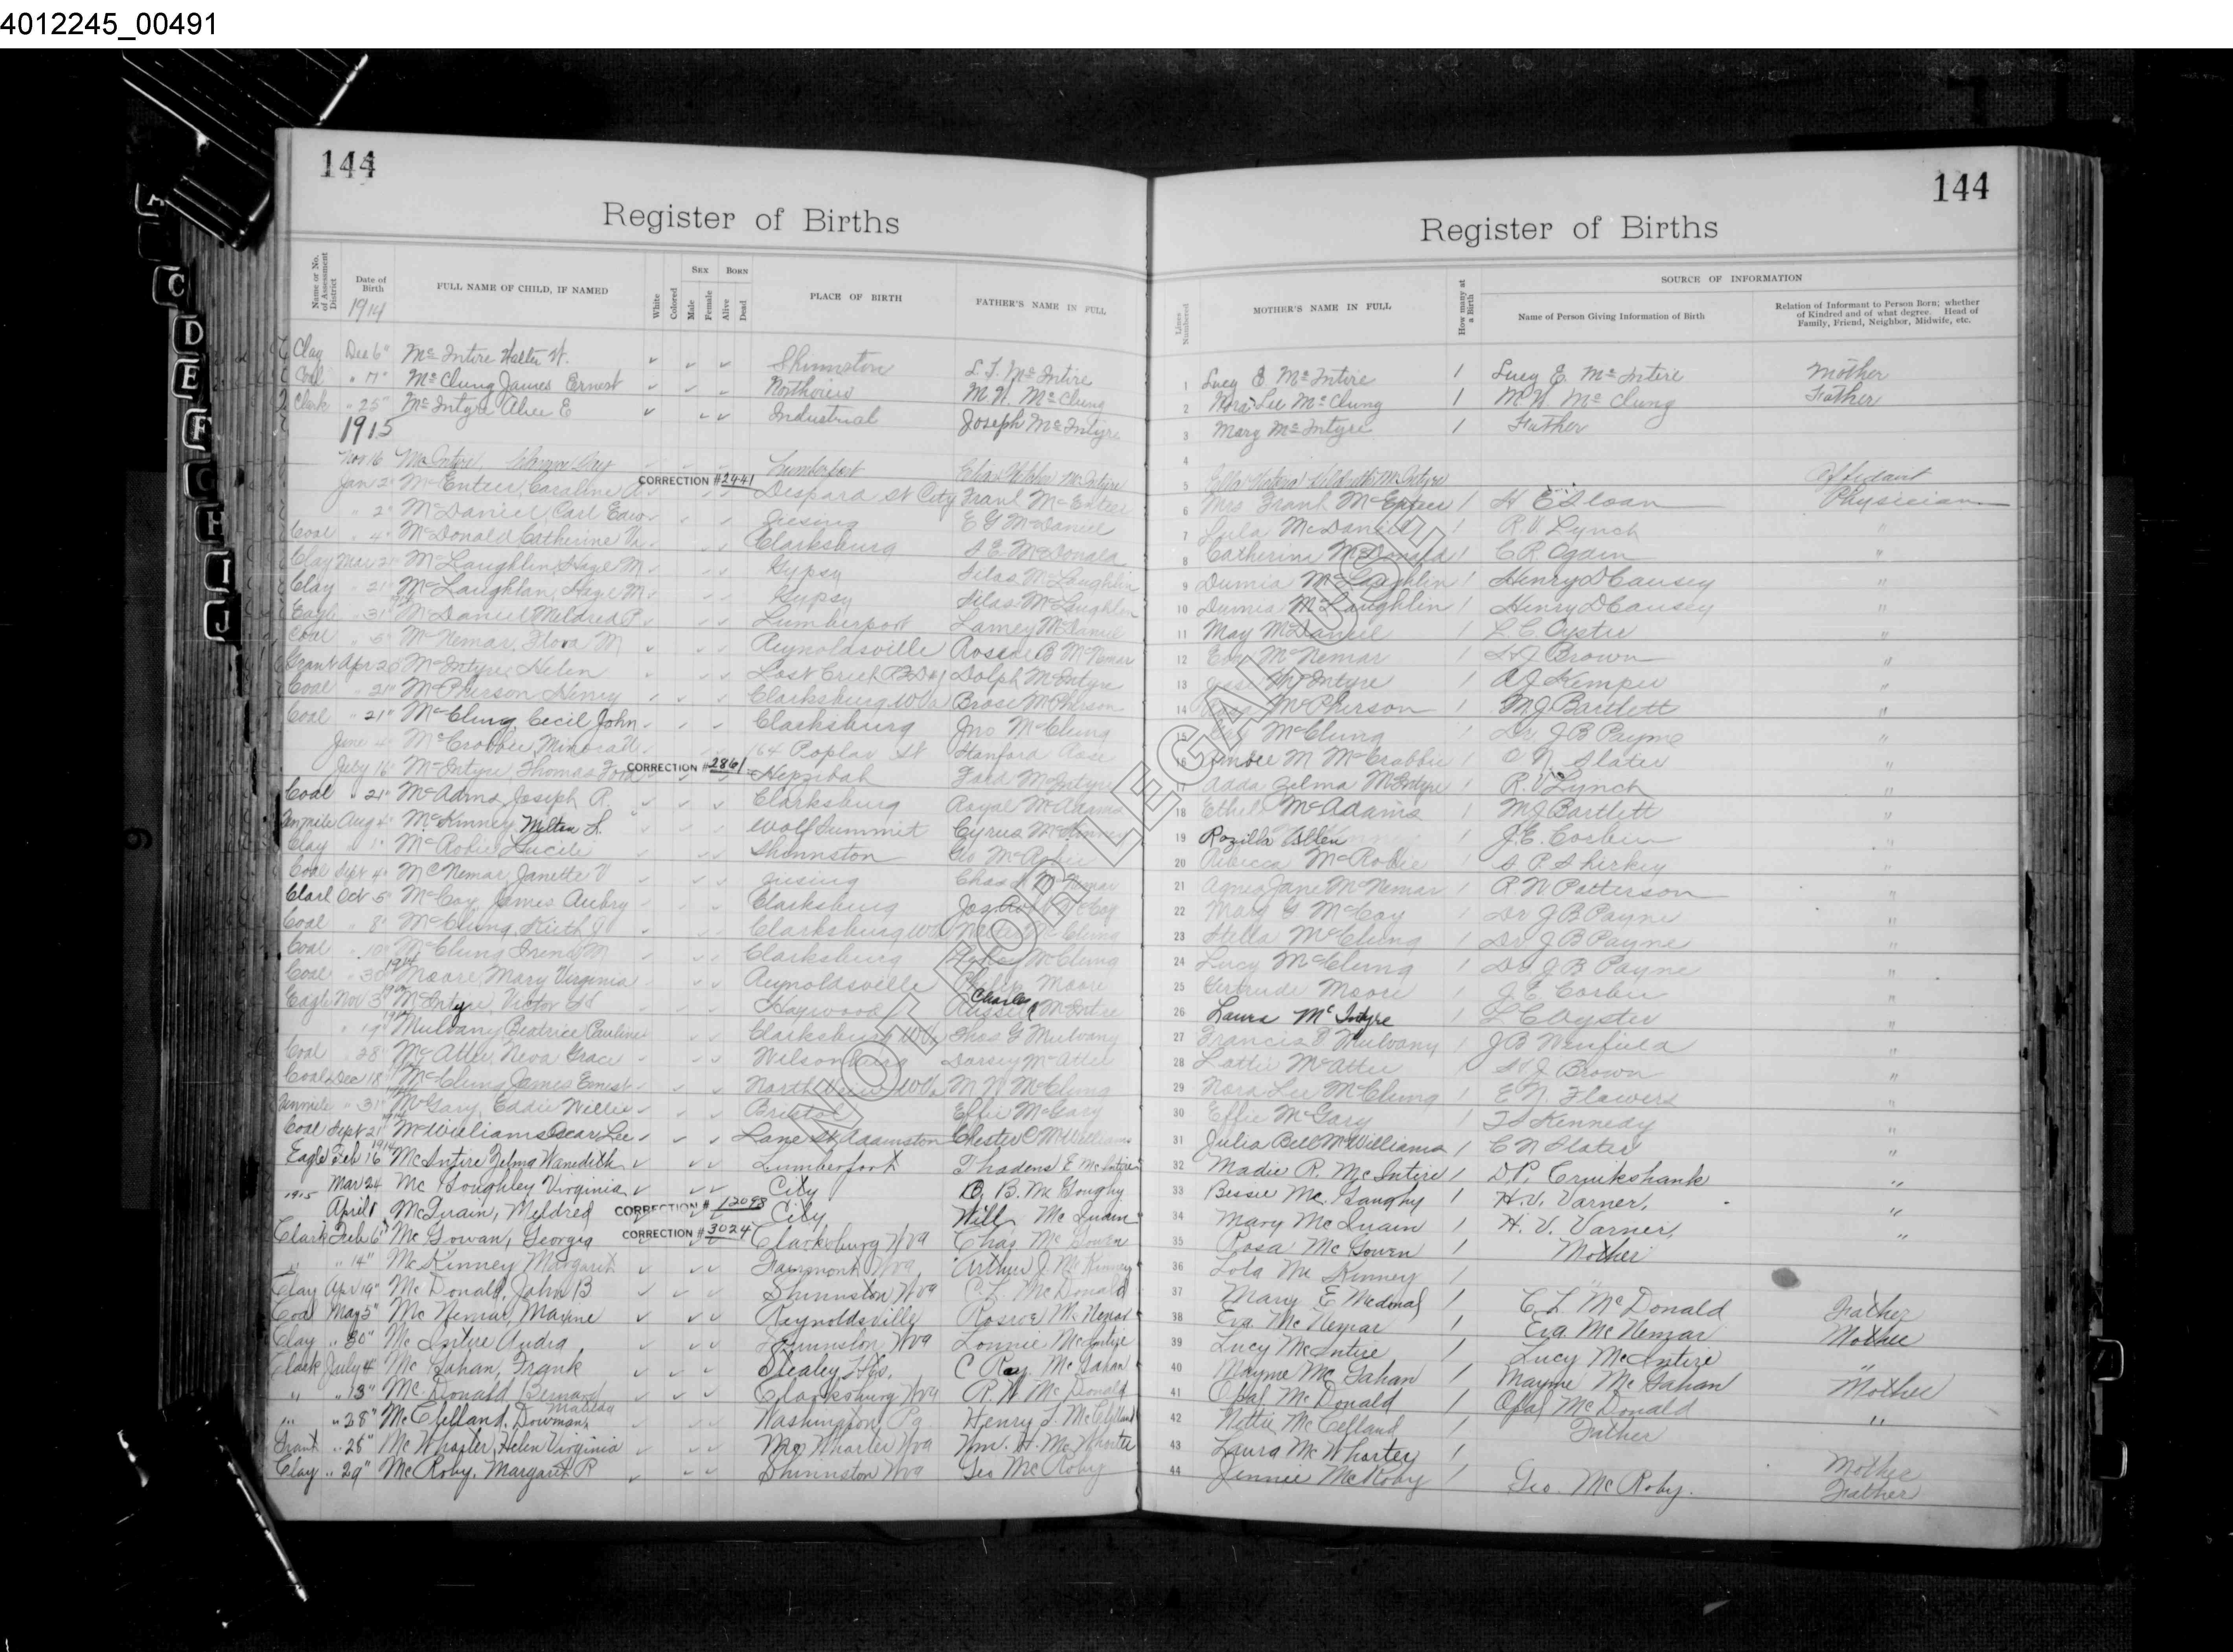 4012245_00491
144
144
Register of Births
Register of Births
Name or No. of Assessment District
Date of Birth
1914
FULL NAME OF CHILD, IF NAMED
White
Colored
SEX
Male
Female
BORN
Alive
Dead
PLACE OF BIRTH
FATHER'S NAME IN FULL
Lines Numbered
MOTHER'S NAME IN FULL
How many at a Birth
SOURCE OF INFORMATION
Name of Person Giving Information of Birth
Relation of Informant to Person Born; whether of Kindred and of what degree. Head of Family, Friend, Neighbor, Midwife, etc.
Clay Dec 6" McIntire Walter W. Shinnston L.T. McIntire 1 Lucy E. McIntire 1 Lucy E. McIntire Mother
Coal " 17" McClung James Ernest Northview M.W. McClung 2 Nora Lee McClung 1 M.W. McClung Father
Clark " 25" McIntyre Alice E Industrial Joseph McIntyre 3 Mary McIntyre 1 Father
1915 4
Nov 16 McIntire Lumberport 5 Affidant
Jan 2" McEnteer, Caroline A. CORRECTION #2441 Despard St City Frank McEnteer 6 Mrs Frank McEnteer 1 H E Sloan Physician
" 2" McDaniel, Carl Edw Giesing E G McDaniel 7 Lula McDaniel 1 R.V. Lynch "
Coal " 4" McDonald Catherine Va. Clarksburg S E. McDonald 8 Catherine McDonald 1 C R Ogden "
Clay Mar 21" McLaughlin, Hazel M Gypsy Silas McLaughlin 9 Dumia McLaughlin 1 Henry D Causey "
Clay " 21" McLaughlin, Hazel M. Gypsy Silas McLaughlin 10 Dumia McLaughlin 1 Henry D Causey "
Eagle " 31" McDaniel Mildred P. Lumberport Lamey McDaniel 11 May McDaniel 1 L.C. Oyster "
Coal " 5" McNemar, Flora M Reynoldsville Roscoe B McNemar 12 Eva McNemar 1 S J Brown "
Grant Apr 20" McIntyre, Helen Lost Creek Dolph McIntyre 13 Jesse McIntyre 1 A J Kemper "
Coal " 21" McPherson Henry Clarksburg W Va Brose McPherson 14 McPherson 1 M J Bartlett "
Coal " 21" McClung Cecil John Clarksburg Jno McClung 15 McClung 1 Dr J B Payne "
June 4" McCrobbie, Minora N. 164 Poplar St Stanford Rose 16 M McCrobbie 1 C N Slater "
July 16" McIntyre, Thomas Ford CORRECTION #2861 Hepzibah Ford McIntyre 17 Adda Zelma McIntyre 1 R. V Lynch "
Coal " 21" McAdams, Joseph R. Clarksburg Royal McAdams 18 Ethel McAdams 1 M J Bartlett "
Tenmile Aug 4" McKinney, Milton L. Wolf Summit Cyrus McKinney 19 Rozilla Allen 1 J. E. Corbin "
Clay " 1" McRobie Lucile Shinnston Geo McRobie 20 Rebecca McRobie 1 S P Shirkey "
Coal Sept 4" McNemar, Janette V Giesing Chas McNemar 21 Agnes Jane McNemar 1 R. N Patterson "
Clark Oct 5" McCoy, James Aubry Clarksburg McCoy 22 Mary G McCoy 1 Dr J B Payne "
Coal " 8" McClung, Keith J Clarksburg W Va McClung 23 Stella McClung 1 Dr J B Payne "
Coal " 10" McClung Irene M Clarksburg McClung 24 Lucy McClung 1 Dr J B Payne "
Coal " 30" 1914 Moore, Mary Virginia Reynoldsville Moore 25 Gertrude Moore 1 J. E. Corbin "
Eagle Nov 3" McIntyre, Victor Haywood Charles Russell McIntire 26 Laura McIntyre 1 L C Oyster "
" 19" Mulvany, Beatrice Pauline Clarksburg W Va Thos G Mulvany 27 Francis P Mulvany 1 J B Winfield "
Coal " 28" McAtee, Neva Grace Wilsonburg Dorsey McAtee 28 Lottie McAtee 1 S J Brown "
Coal Dec 18" McClung James Ernest North View W Va M W McClung 29 Nora Lee McClung 1 E N. Flowers "
Tenmile " 31" McGary, Eddie Willie Bristol Effie McGary 30 Effie McGary 1 T S Kennedy "
Coal Sept 21" McWilliams Oscar Lee Lane St. Adamston Chester C McWilliams 31 Julia Bell McWilliams 1 C N Slater "
Eagle Feb 16 1914 McIntire Zelma Wanedith Lumberport Thadens E McIntire 32 Madie R. McIntire 1 D. P. Cruikshank "
1915 Mar 24 Mc Goughley Virginia City O. B. Mc Goughy 33 Bessie Mc. Gaughy 1 H. V. Varner. "
April 1 McQuain, Mildred CORRECTION #12098 City Will Mc Quain 34 Mary Mc Quain 1 H. V. Varner, "
Clark Feb 6" Mc Gowan, Georgia CORRECTION #3024 Clarksburg W Va Chas Mc Gowen 35 Rosa Mc Gowen 1 Mother
" " 14" McKinney Margaret Fairmont W Va Arthur J. McKinney 36 Lola Mc Kinney 1 "
Clay Apr 19" Mc Donald, John B Shinnston W Va C. L. McDonald 37 Mary E McDonal 1 C. L. McDonald Father
Coal May 5" Mc Nemar, Maxine Reynoldsville Roscoe McNemar 38 Eva McNemar 1 Eva McNemar Mother
Clay " 30" Mc Intire Audra Shinnston W Va Lonnie McIntire 39 Lucy McIntire 1 Lucy McIntire "
Clark July 4" Mc Gahan, Frank Stealey Hts. C Ray McGahan 40 Mayme Mc Gahan 1 Mayme Mc Gahan Mother
" " 13" McDonald Bernard Clarksburg W Va R. W McDonald 41 Opal McDonald 1 Opal McDonald "
" " 28" McClelland, Dowman, Matilda Washington, Pa Henry S. McClelland 42 Nettie McClelland 1 Father
Grant " 28" McWhorter, Helen Virginia McWhorter W Va Wm. H. McWhorter 43 Laura McWhorter 1 Mother
Clay " 29" McRoby, Margaret R Shinnston W Va Geo McRoby 44 Jennie McRoby 1 Geo. McRoby. Father
NOT FOR LEGAL USE
C
D
E
F
G
H
I
J